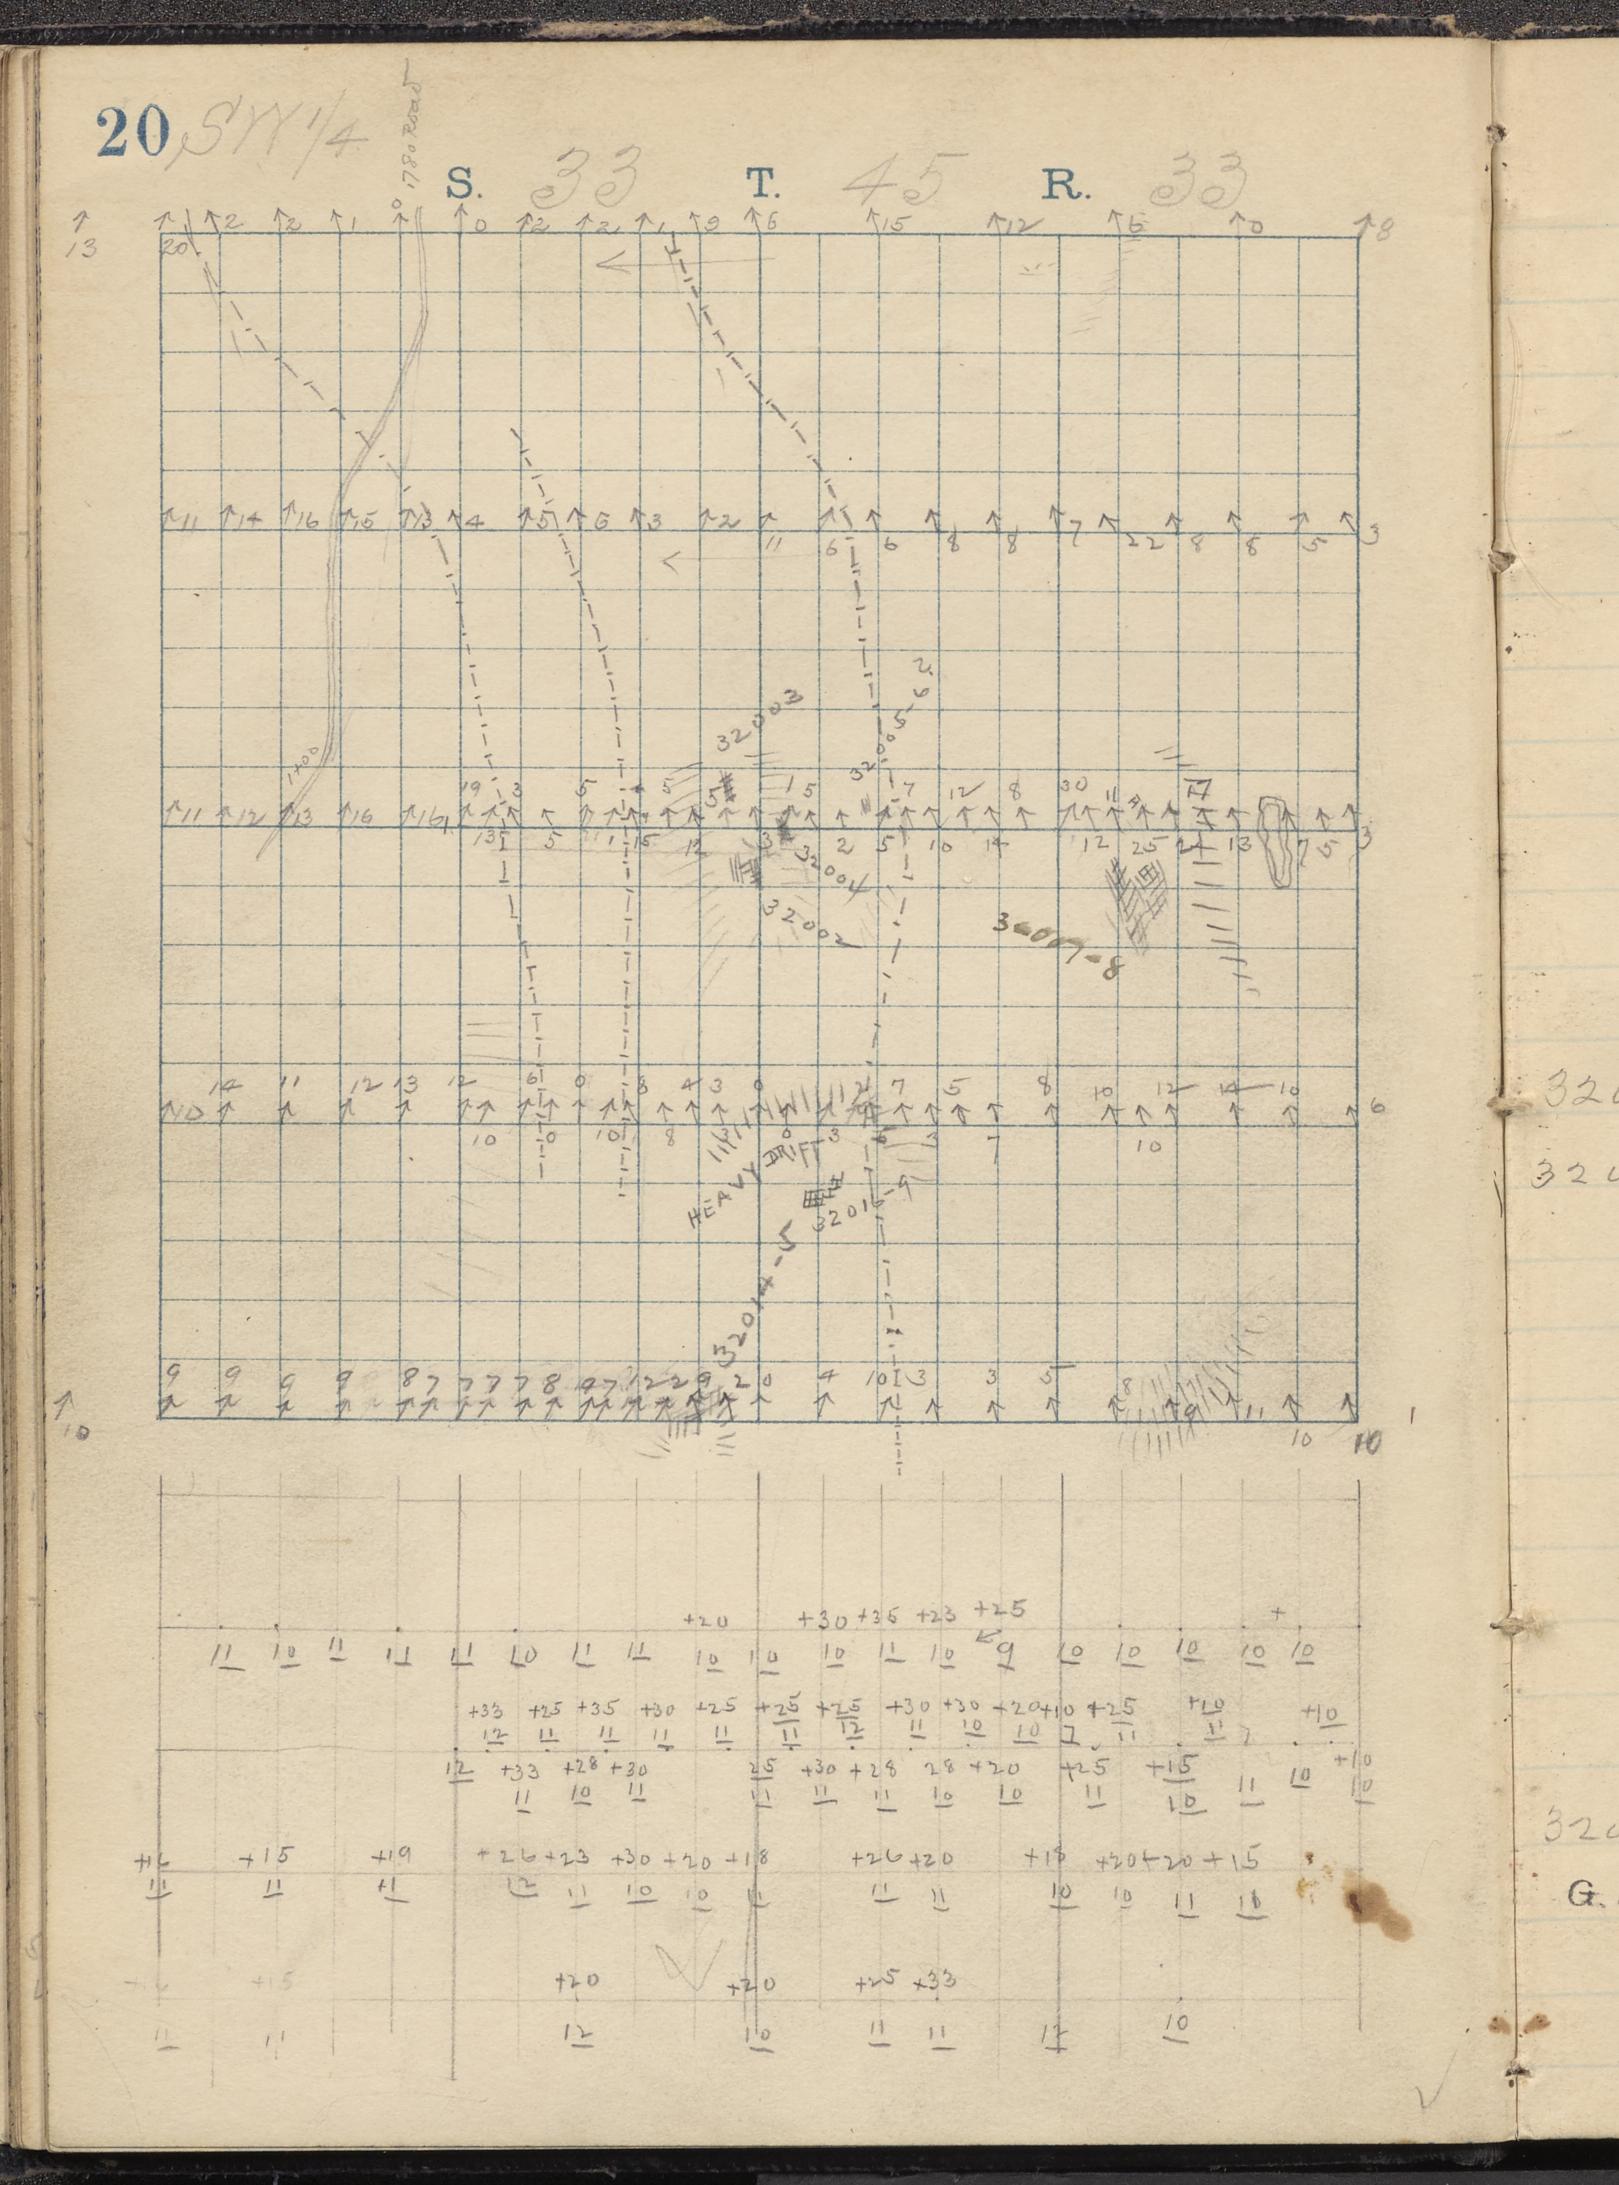 20 SW 1/4
1780 Road
S. 33 T. 45 R. 33
2 2 1 0 2 2 1 9 6 15 12 6 0 8
13 20
11 14 16 15 13 4 5 5 3 2
11 6 6 8 8 7 22 8 8 5 3
2
32003
32005-6
1400
19 3 5 5 5 1 5 7 12 8 30 11 17
11 12 13 16 16
13 5 11 15 12 3 2 5 10 14 12 25 21 13 7 5 3
32004
32002
32007-8
14 11 12 13 12 6 0 8 4 3 0 12 7 5 8 10 12 12 10
10 6
10 0 10 8 3 0 3 6 3 7 10
HEAVY DRIFT
32016-9
32014-5
9 9 9 9 8 7 7 7 7 8 12 2 9 2 0 4 10 3 3 5
8 9 11
10 10 10
1
+20 +30 +35 +23 +25
+
11 10 11 11 11 10 11 11 10 10 10 11 10 9 10 10 10 10 10
+33 +25 +35 +30 +25 +25 +25 +30 +30 +20 +10 +25 +10 +10
12 11 11 11 11 11 12 11 10 10 7 11 11 7
12 +33 +28 +30 25 +30 +28 28 +20 +25 +15 +10
11 10 11 11 11 11 10 10 11 10 11 10 10
+15 +19 +26 +23 +30 +20 +18 +26 +20 +18 +20 +20 +15
11 11 11 12 11 10 10 11 11 11 10 10 11 10
+15 +20 +20 +25 +33
11 11 12 10 11 11 12 10
320
320
320
G.